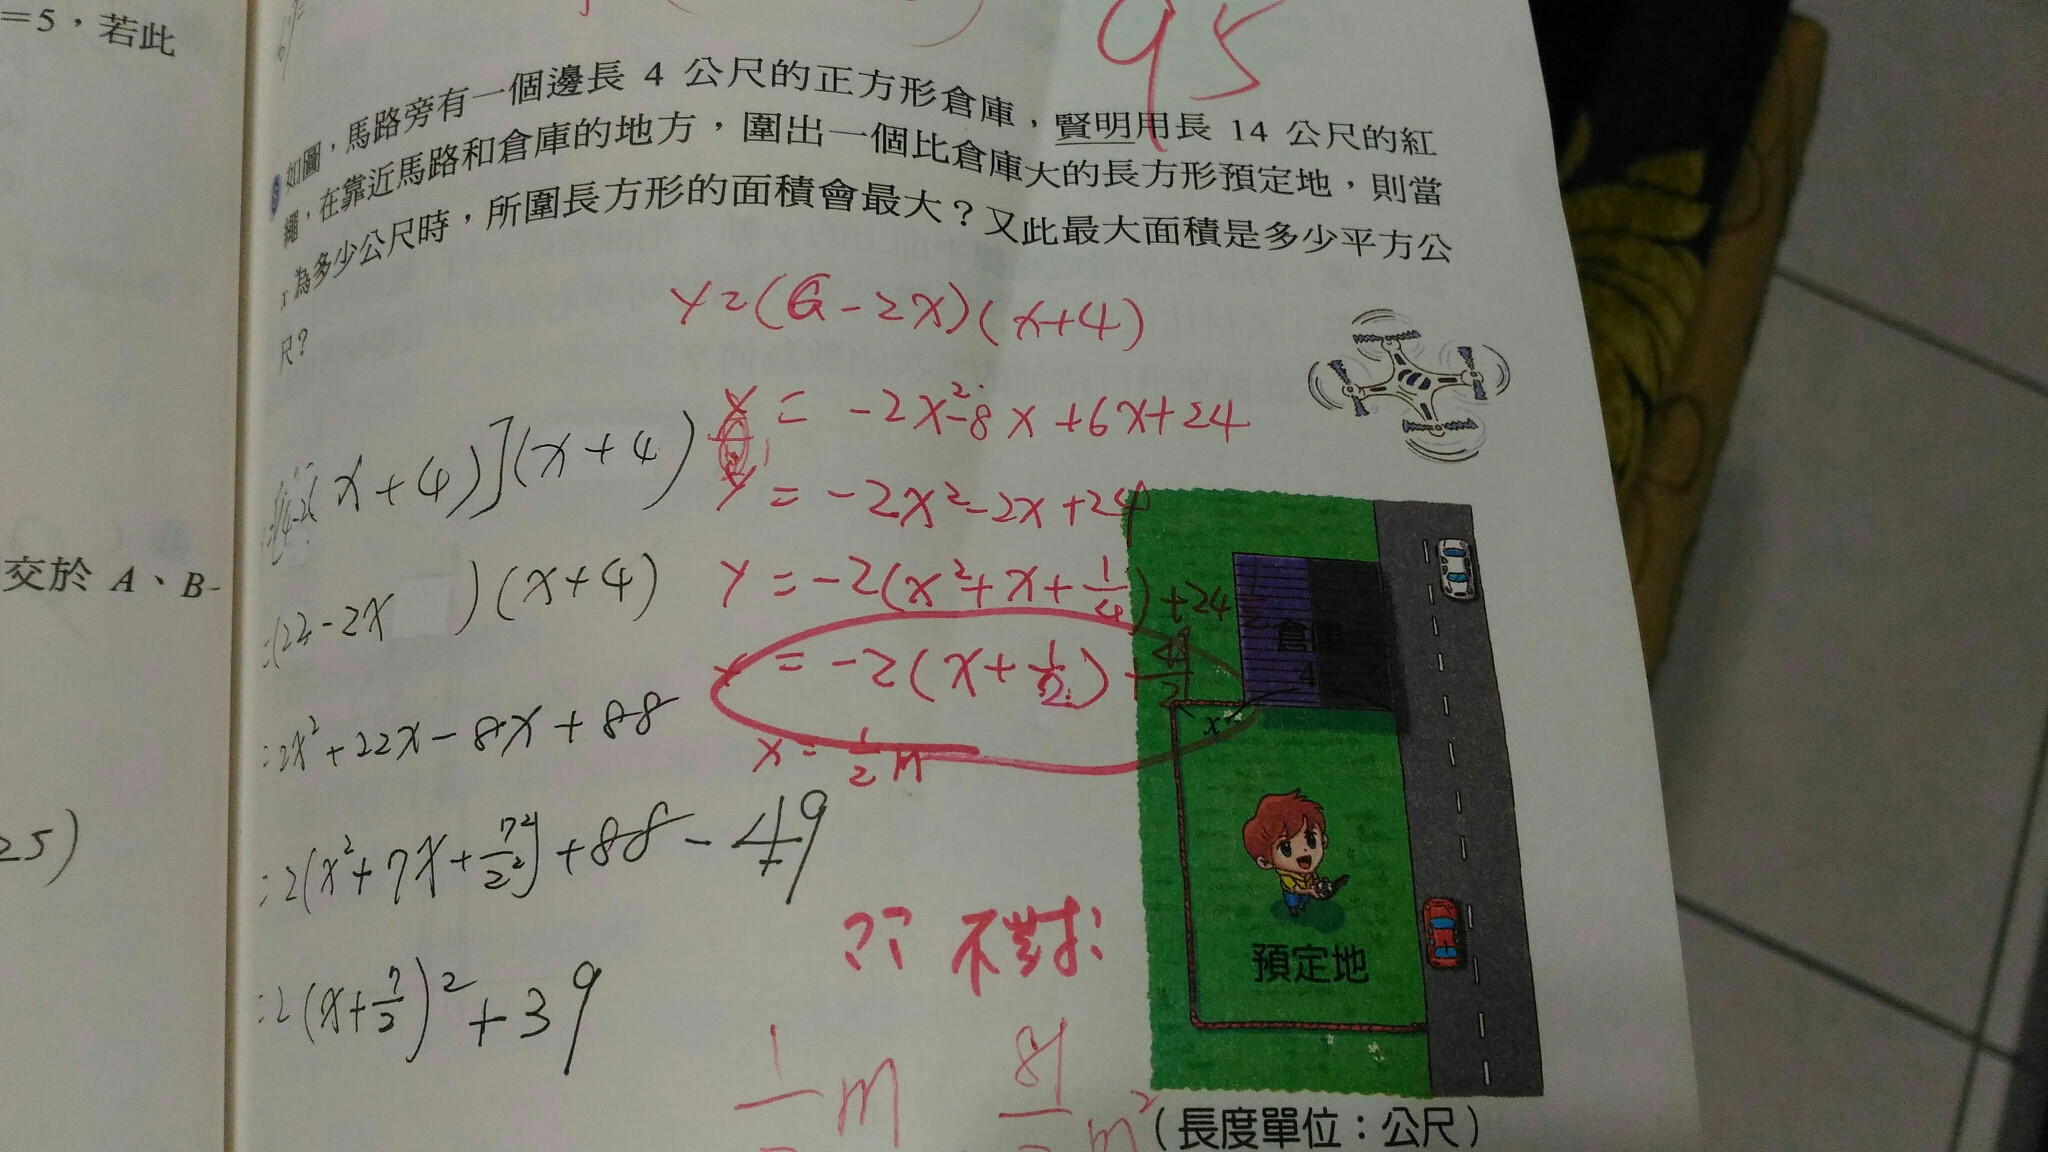 =5，若此
95
如圖，馬路旁有一個邊長 4 公尺的正方形倉庫，賢明用長 14 公尺的紅
繩，在靠近馬路和倉庫的地方，圍出一個比倉庫大的長方形預定地，則當
x 為多少公尺時，所圍長方形的面積會最大？又此最大面積是多少平方公
尺？
y=(6-2x)(x+4)
= -2x²-8x+6x+24
y = -2x²-2x+24
y = -2(x²+x+1/4)+24 1/2
= -2(x+1/2)+49/2
x = 1/2 m
x+4)](x+4)
=(22-2x )(x+4)
=2x²+22x-8x+88
=2(x²+7x+7²/2²)+88-49
=2(x+7/2)²+39
?? 不對
m
m²
交於 A、B
25)
倉庫
4
x
預定地
（長度單位：公尺）